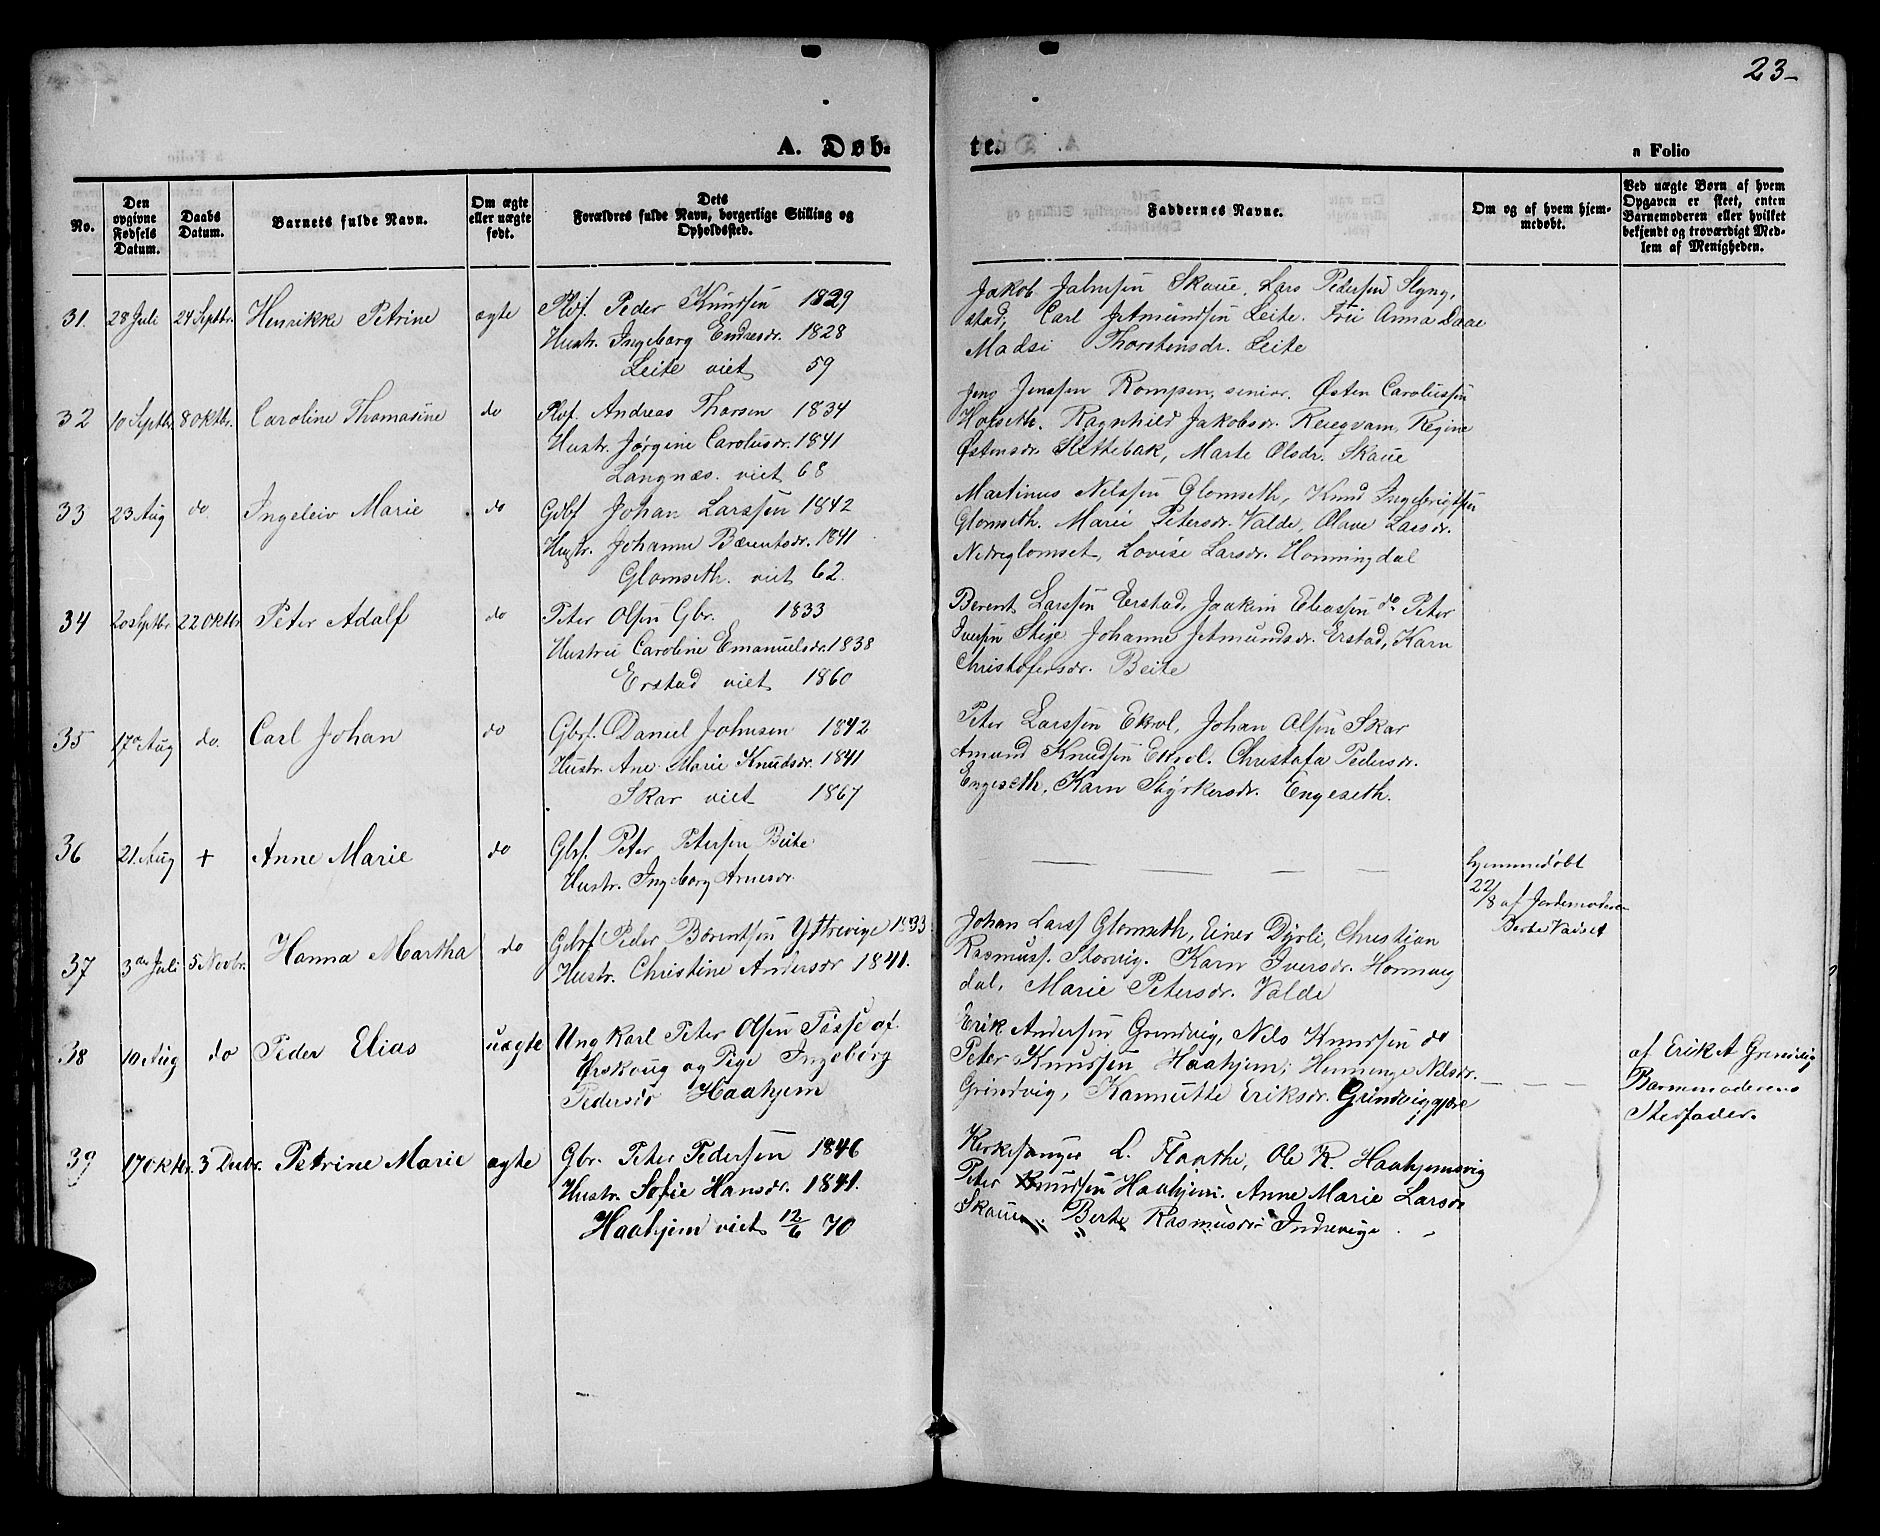 23-
A. Døb-
te.
n Folio
No.
Den opgivne Fødsels Datum.
Daabs Datum.
Barnets fulde Navn.
Om ægte eller uægte født.
Dets Forældres fulde Navn, borgerlige Stilling og Opholdssted.
Faddernes Navne.
Om og af hvem hjemmedøbt.
Ved uægte Børn af hvem Opgaven er skeet, enten Barnemoderen eller hvilket bekjendt og troværdigt Medlem af Menigheden.
31. 28 Juli 24 Septbr. Henrikke Petrine ægte
Plds. Peder Knudsen 1829
Hustr. Ingeborg Endresdr. 1828
Leite viet 59
Lars Pedersen Slyng,
stad, Carl Amundsen Leite. Anna Daae
Madsi Thorstensdr. Leite
32 10 Septbr. 8 Oktbr. Caroline Thomasine do
Plds. Andreas Thorsen 1834
Hustr. Jørgine Carolusdr. 1841
Langnæs. viet 68
Jens Jenssen Rompen, senior. Østen Carolussen
Hofseth. Ragnhild Jakobsdr. Regine
Østensdr. Slettebak, Marte Olsdr. Skaue
33 23 Aug do. Ingeleiv Marie do
Gdbf Johan Larssen 1842
Hustr. Johanne Bærentsdr. 1841
Glomseth. viet 62.
Martinus Nilssen Glomseth, Knud Ingebrigtsen
Glomseth. Marie Petersdr. Valde, Olave Larsdr.
Nedreglomset, Lovise Larsdr. Honningdal
34 20 Septbr 22 Oktbr Peter Adolf do
Peter Olsen Gbr. 1833
Hustru Caroline Emanuelsdr. 1838
Erstad viet 1860
Berent Larssen Erstad, Joakim Eliassen do Peter
Iversen Stige Johanne Amundsdr. Erstad, Karn
Christofersdr. Beite
35 17de Aug do. Carl Johan do
Gbrf. Daniel Johnsen 1842
Hustr. Ane Marie Knudsdr. 1841
Skar viet 1867
Peter Larssen Ekrol, Johan Olsen Skar
Amund Knudsen Ekrol. Christofa Pedersdr.
Engeseth, Karn Styrkersdr. Engeseth.
36 21. Aug + Anne Marie do
Gbrf. Peter Petersen Beite
Hustr. Ingeborg Arnesdr.
hjemmedøbt
22/8 af Jordemoderen
Berte Vadset
37 3die Juli 5 Novbr. Hanna Martha do
Gbrf Peder Bærentsen Yttrevige 1833
Hustr. Christine Andersdr 1841.
Johan Larss Glomseth, Einer Dyrli, Christian
Rasmuss. Storvig. Karn Iversdr. Honning
dal, Marie Petersdr. Valde
38 10 Aug do Peder Elias uægte
Ungkarl Peter Olsen Tøsse af
Ørskoug og Pige Ingeborg
Pedersdr Haahjem
Erik Andersen Grindvig, Nils Knudsen do
Peter Knudsen Haahjem, Nilsdr.
Grindvig, Kanutte Eriksdr. Grindvig
af Erik A Grindvig
Barnemoderens
Stedfader.
39 17 Oktbr. 3 Decbr. Petrine Marie ægte
Gbr. Peter Pedersen 1846
Hustr. Sofie Hansdr. 1841.
Haahjem viet 12/6 70
Kirkesanger L. Flaathe, Ole K. Haahjemsvig
Peter Knudsen Haahjem. Anne Marie Larsdr
Skaue. Berte Rasmusdr Indrevige